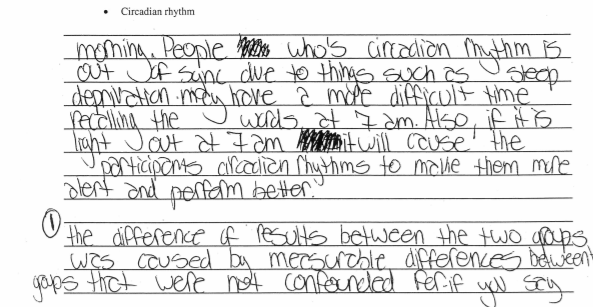 • Circadian rhythm
morning. People who's circadian rhythm is
out of sync due to things such as sleep
deprivation may have a more difficult time
recalling the words at 7 am. Also, if it is
light out at 7 am it will cause the
participants circadian rhythms to make them more
alert and perform better.
① the difference of results between the two groups
was caused by measurable differences between
goups that were not confounded Ref: if you say